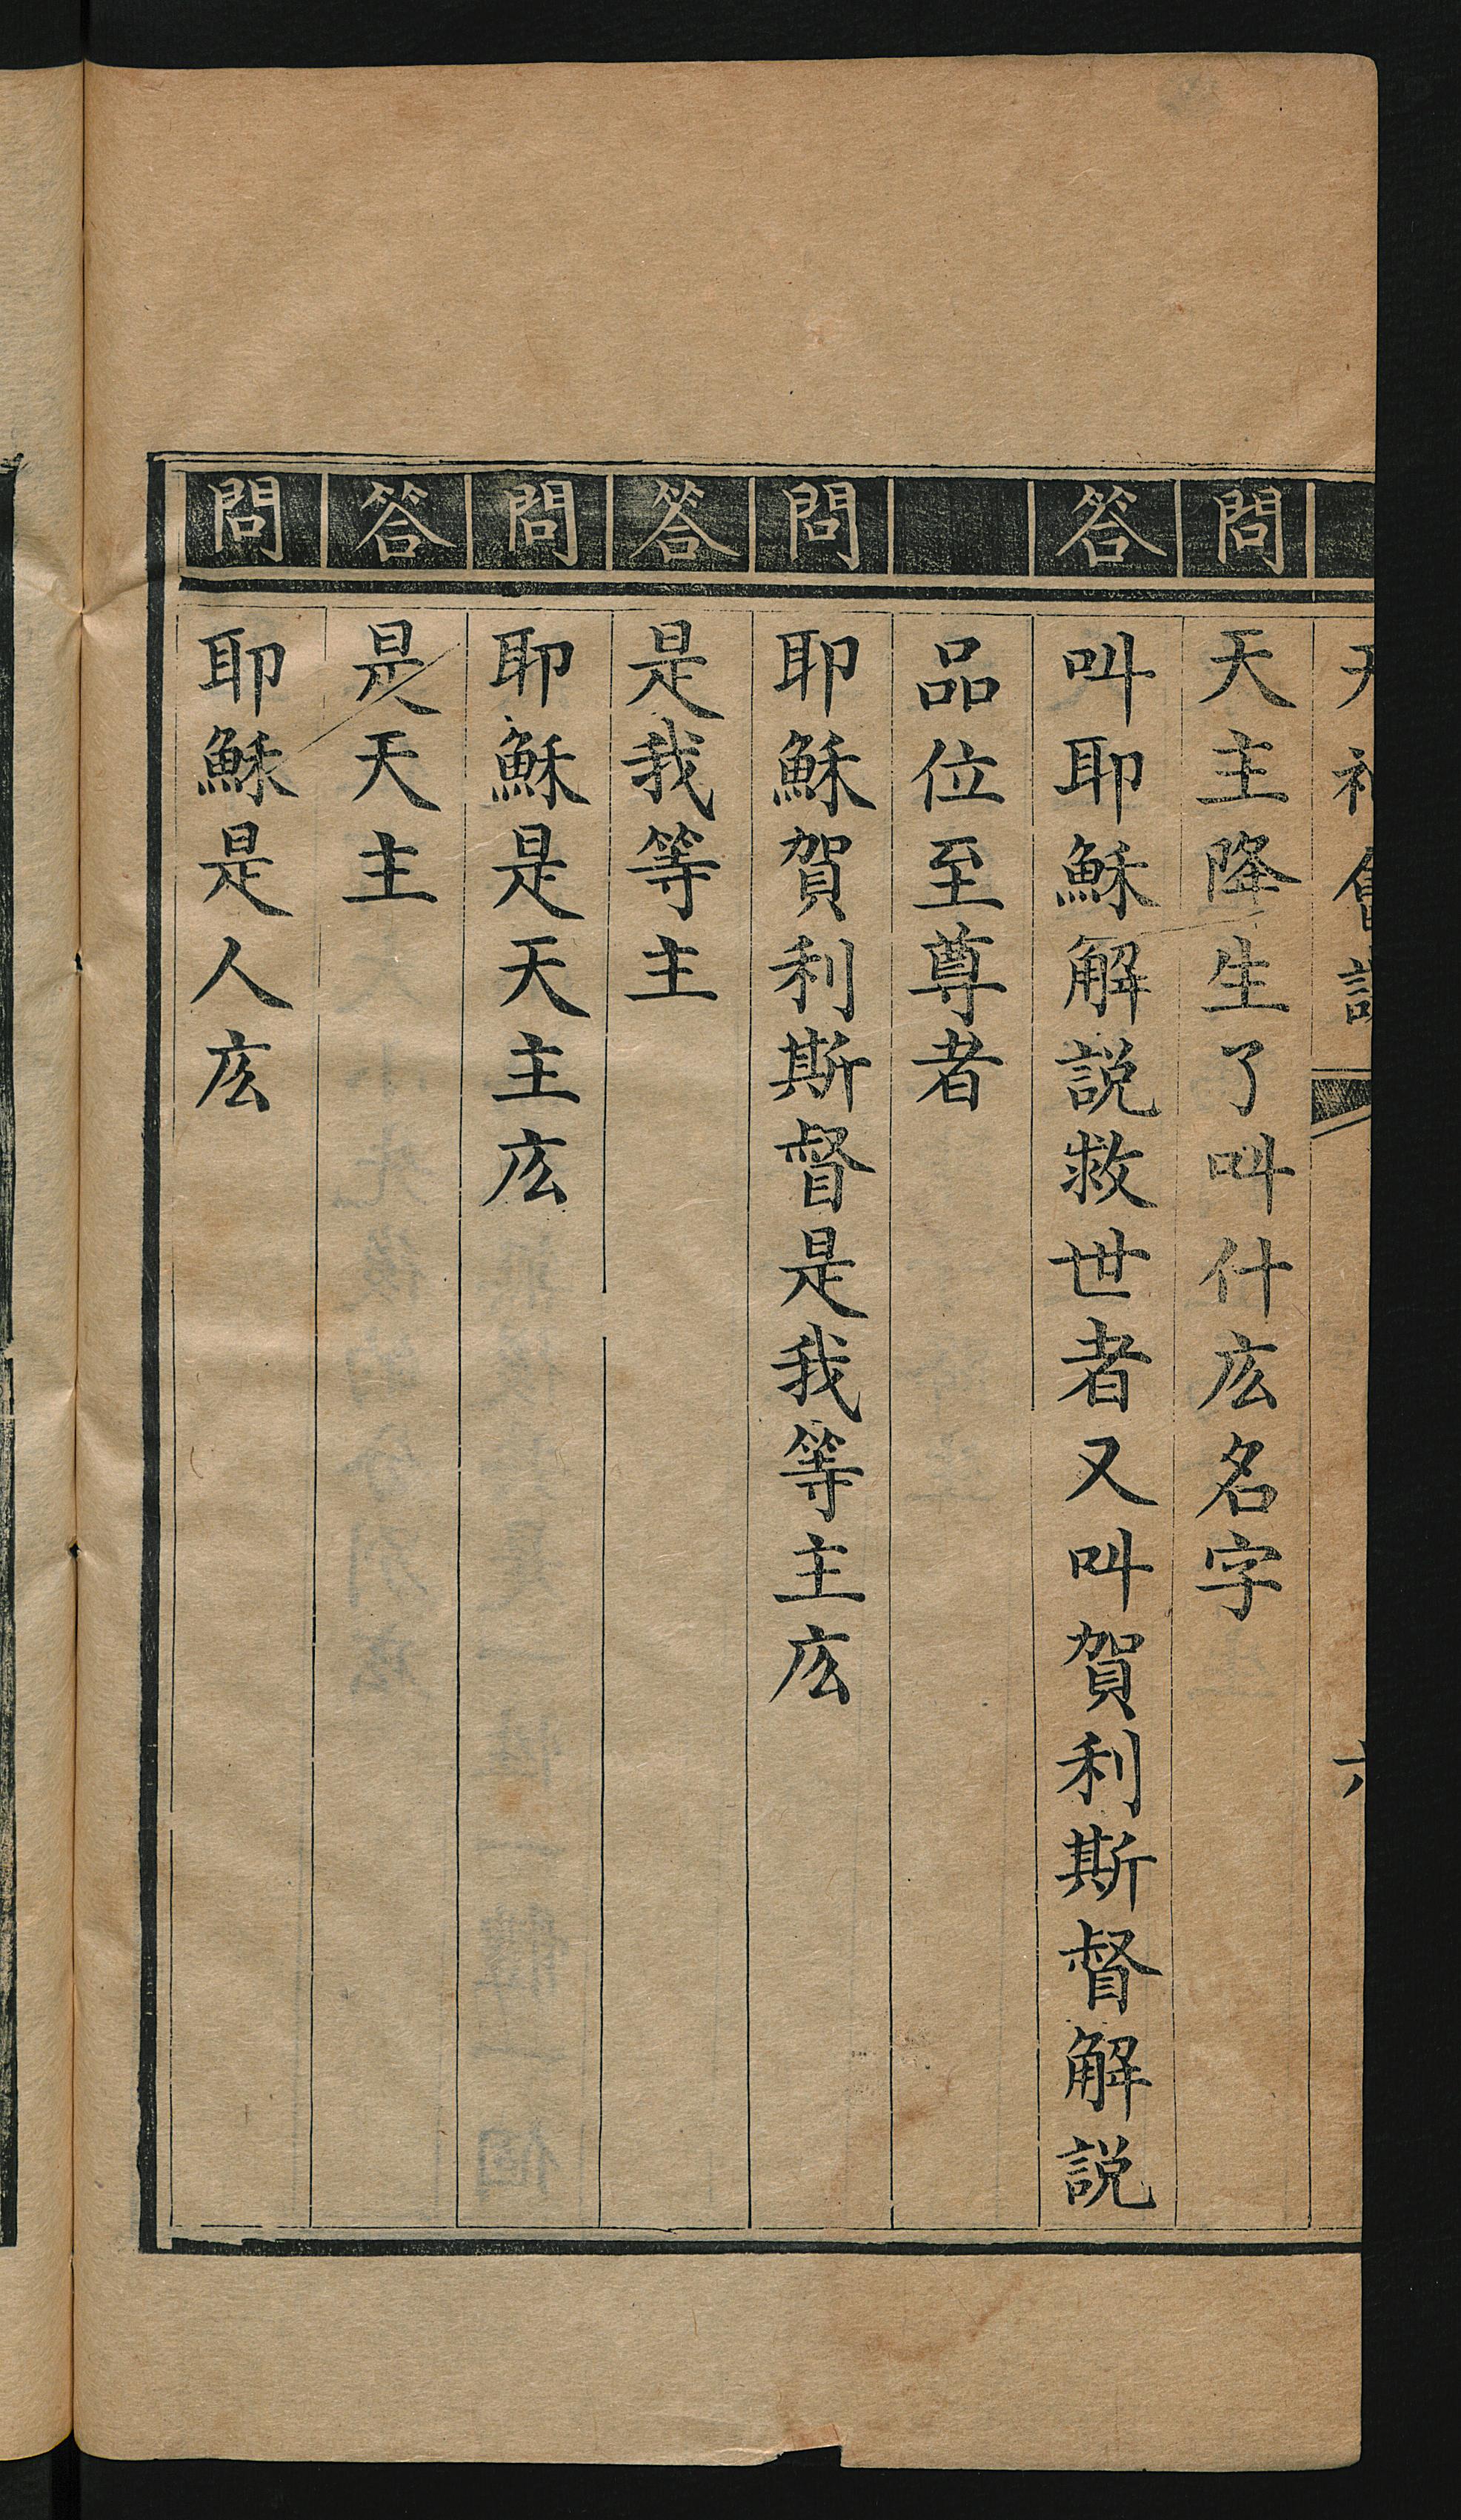 天神會課 六
問 天主降生了叫什庅名字
答 叫耶穌解說救世者又叫賀利斯督解說
品位至尊者
問 耶穌賀利斯督是我等主庅
答 是我等主
問 耶穌是天主庅
答 是天主
問 耶穌是人庅